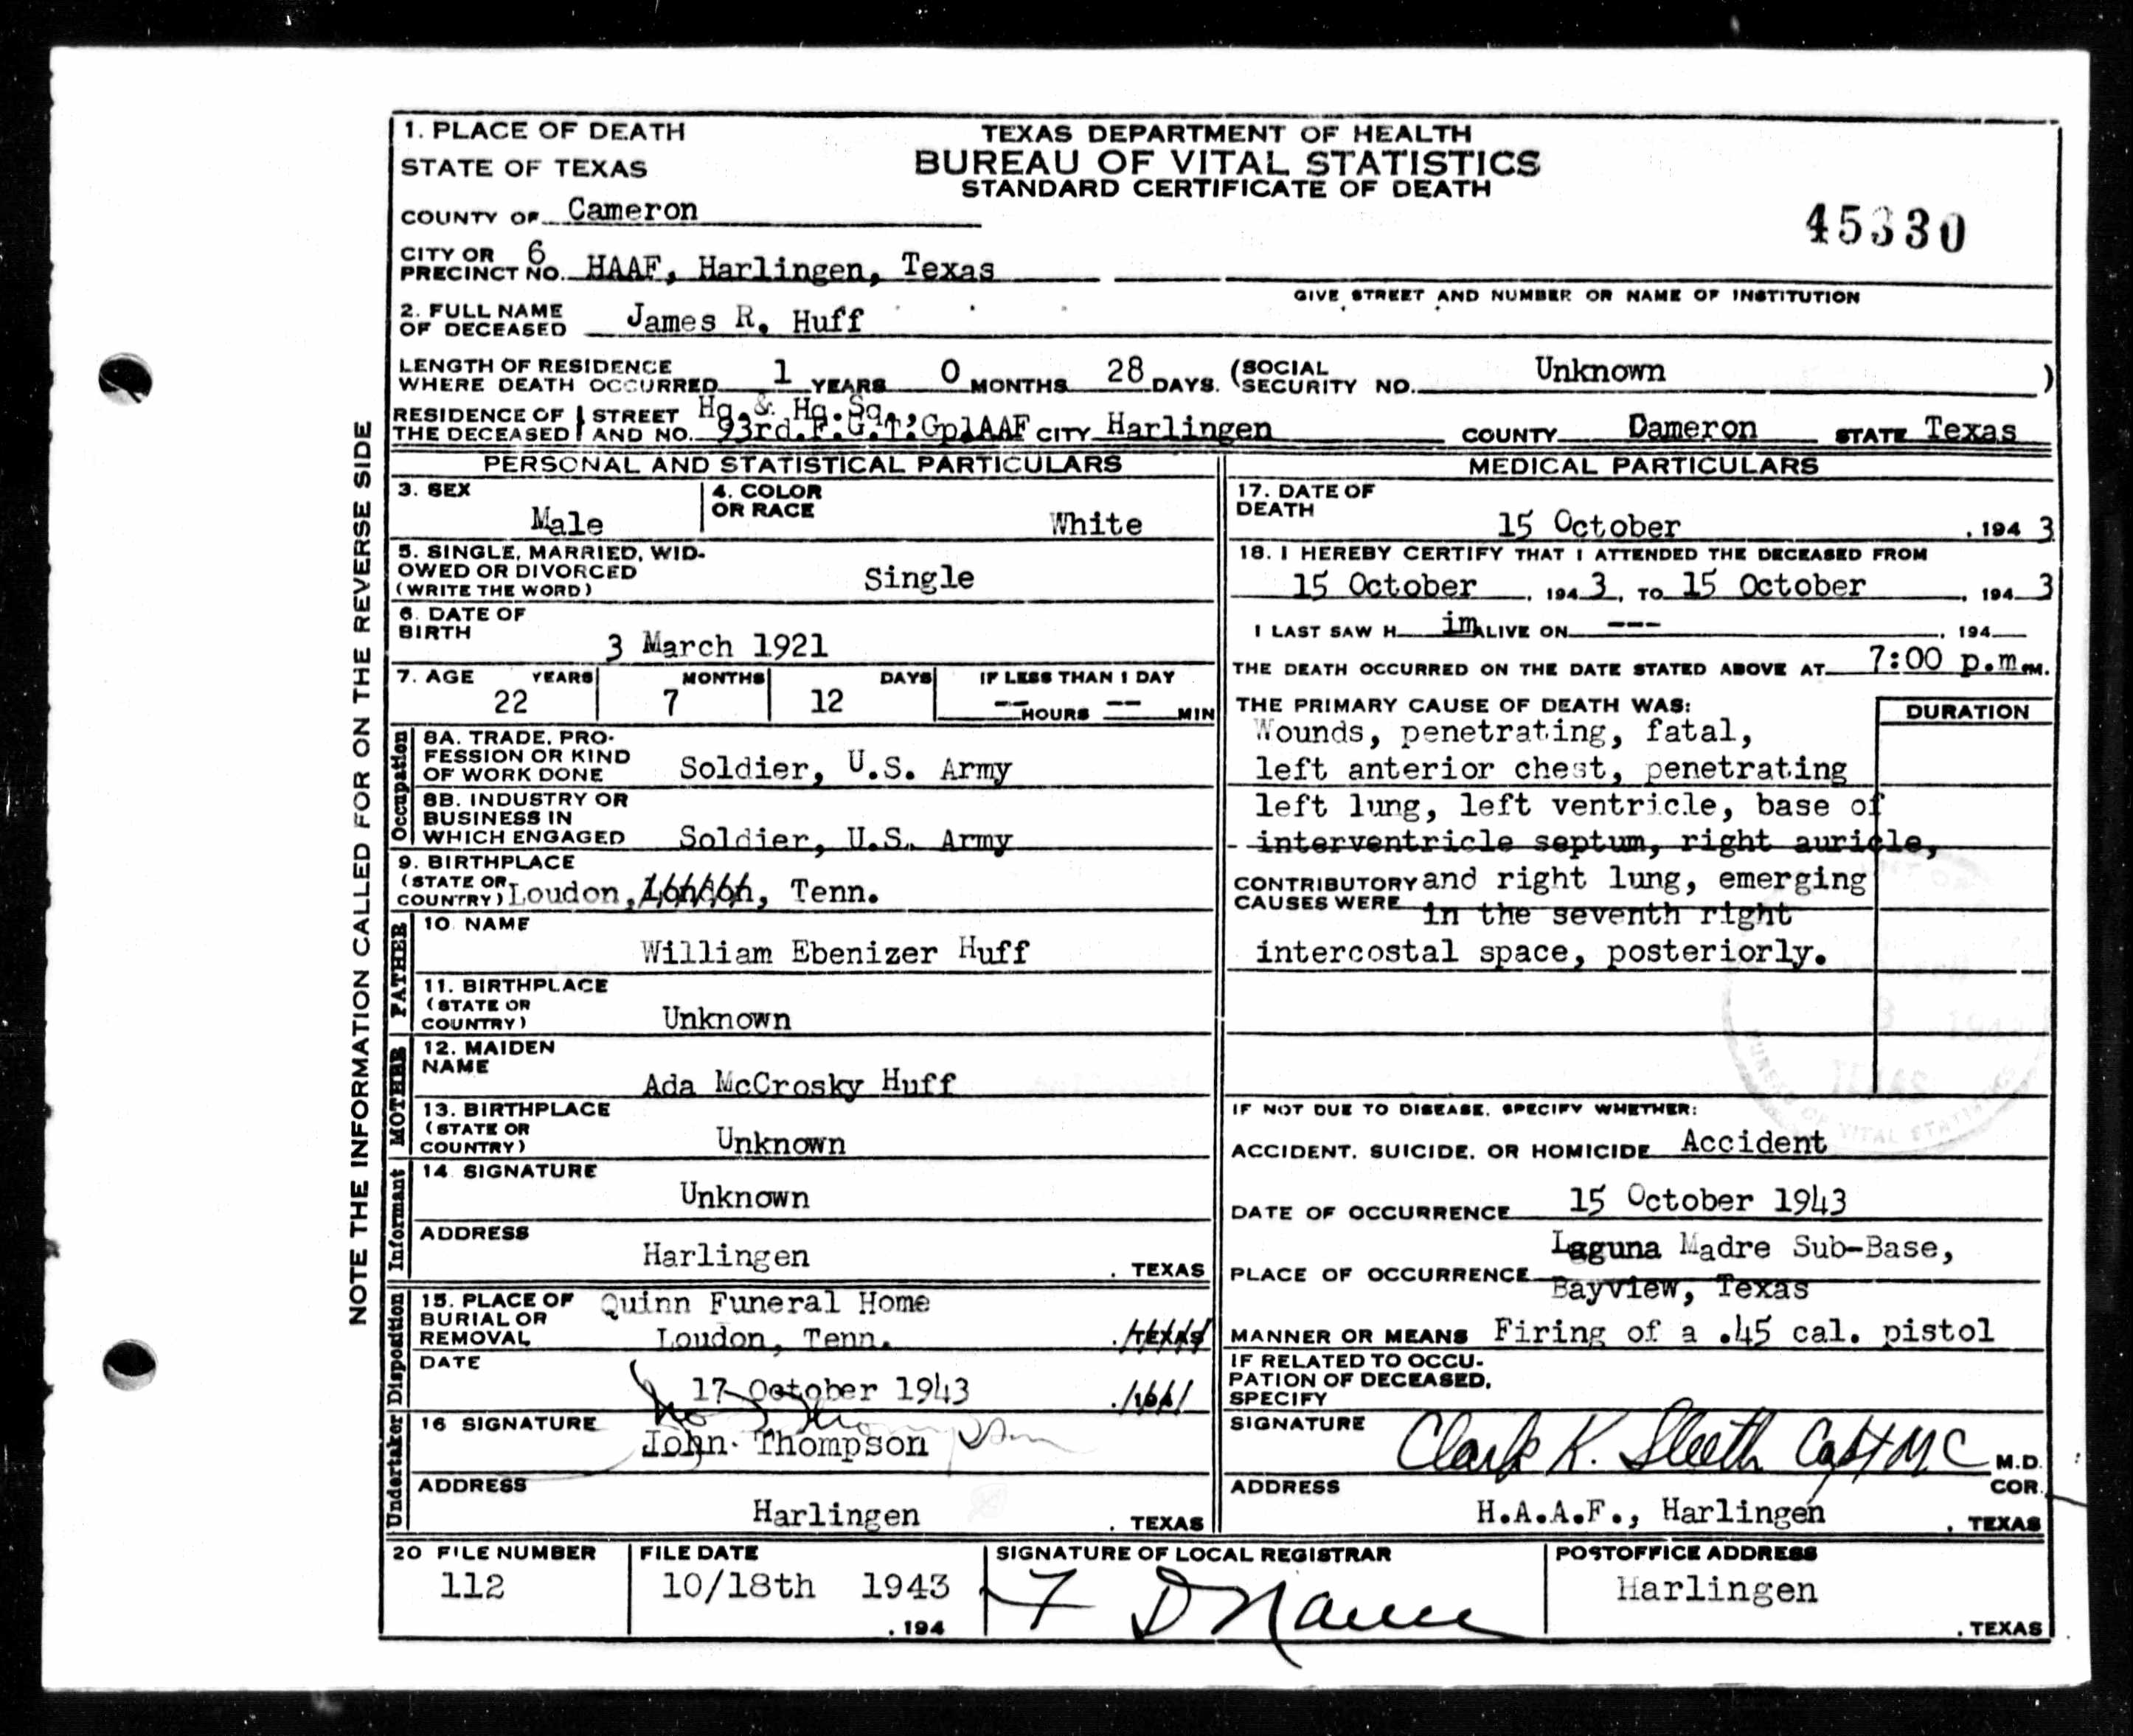 1. PLACE OF DEATH
STATE OF TEXAS
TEXAS DEPARTMENT OF HEALTH
BUREAU OF VITAL STATISTICS
STANDARD CERTIFICATE OF DEATH
COUNTY OF Cameron
45330
CITY OR PRECINCT NO. 6 HAAF, Harlingen, Texas
GIVE STREET AND NUMBER OR NAME OF INSTITUTION
2. FULL NAME OF DECEASED James R. Huff
LENGTH OF RESIDENCE WHERE DEATH OCCURRED 1 YEARS 0 MONTHS 28 DAYS. (SOCIAL SECURITY NO. Unknown )
RESIDENCE OF THE DECEASED STREET AND NO. Hq. & Hq. Sq., 93rd. F.G.T. Gp HAAF CITY Harlingen COUNTY Dameron STATE Texas
NOTE THE INFORMATION CALLED FOR ON THE REVERSE SIDE
PERSONAL AND STATISTICAL PARTICULARS
3. SEX Male
4. COLOR OR RACE White
5. SINGLE, MARRIED, WID-
OWED OR DIVORCED
(WRITE THE WORD) Single
6. DATE OF BIRTH 3 March 1921
7. AGE YEARS MONTHS DAYS IF LESS THAN 1 DAY
22 7 12 -- HOURS -- MIN
Occupation
8A. TRADE, PRO-
FESSION OR KIND
OF WORK DONE Soldier, U.S. Army
8B. INDUSTRY OR
BUSINESS IN
WHICH ENGAGED Soldier, U.S. Army
9. BIRTHPLACE
(STATE OR
COUNTRY) Loudon, London, Tenn.
FATHER
10 NAME
William Ebenizer Huff
11. BIRTHPLACE
(STATE OR
COUNTRY) Unknown
MOTHER
12. MAIDEN
NAME
Ada McCrosky Huff
13. BIRTHPLACE
(STATE OR
COUNTRY) Unknown
Informant
14 SIGNATURE
Unknown
ADDRESS
Harlingen , TEXAS
Disposition
15. PLACE OF Quinn Funeral Home
BURIAL OR
REMOVAL Loudon, Tenn. , TEXAS
DATE
17 October 1943 , 194
Undertaker
16 SIGNATURE
John Thompson
John Thompson
ADDRESS
Harlingen , TEXAS
MEDICAL PARTICULARS
17. DATE OF
DEATH 15 October , 194 3
18. I HEREBY CERTIFY THAT I ATTENDED THE DECEASED FROM
15 October , 194 3, TO 15 October , 194 3
I LAST SAW H im ALIVE ON --- , 194
THE DEATH OCCURRED ON THE DATE STATED ABOVE AT 7:00 p.m. M.
THE PRIMARY CAUSE OF DEATH WAS: DURATION
Wounds, penetrating, fatal,
left anterior chest, penetrating
left lung, left ventricle, base of
interventricle septum, right auricle,
CONTRIBUTORY and right lung, emerging
CAUSES WERE in the seventh right
intercostal space, posteriorly.
IF NOT DUE TO DISEASE, SPECIFY WHETHER:
ACCIDENT, SUICIDE, OR HOMICIDE Accident
DATE OF OCCURRENCE 15 October 1943
Laguna Madre Sub-Base,
PLACE OF OCCURRENCE Bayview, Texas
MANNER OR MEANS Firing of a .45 cal. pistol
IF RELATED TO OCCU-
PATION OF DECEASED,
SPECIFY
SIGNATURE Clark K. Sleeth Capt MC M.D.
COR.
ADDRESS
H.A.A.F., Harlingen , TEXAS
20 FILE NUMBER
112
FILE DATE
10/18th 1943
, 194
SIGNATURE OF LOCAL REGISTRAR
POSTOFFICE ADDRESS
Harlingen
, TEXAS